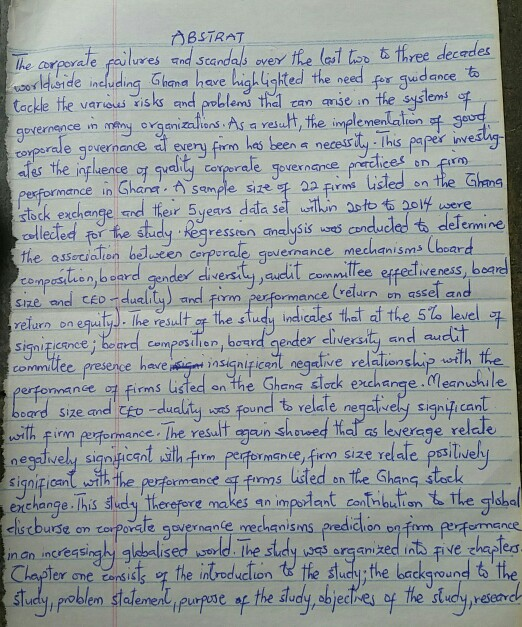 ABSTRAT
The corporate failures and scandals over the last two to three decades
worldwide including Ghana have highlighted the need for guidance to
tackle the various risks and problems that can arise in the systems of
governance in many organizations. As a result, the implementation of good
corporate governance at every firm has been a necessity. This paper investig-
ates the influence of quality corporate governance practices on firm
performance in Ghana. A sample size of 22 firms listed on the Ghana
stock exchange and their 5 years data set within 2010 to 2014 were
collected for the study. Regression analysis was conducted to determine
the association between corporate governance mechanisms (board
composition, board gender diversity, audit committee effectiveness, board
size and CEO-duality) and firm performance (return on asset and
return on equity). The result of the study indicates that at the 5% level of
significance; board composition, board gender diversity and audit
committee presence have insignificant negative relationship with the
performance of firms listed on the Ghana stock exchange. Meanwhile
board size and CEO-duality was found to relate negatively significant
with firm performance. The result again showed that as leverage relate
negatively significant with firm performance, firm size relate positively
significant with the performance of firms listed on the Ghana stock
exchange. This study therefore makes an important contribution to the global
discourse on corporate governance mechanisms prediction on firm performance
in an increasingly globalised world. The study was organized into five chapters.
Chapter one consists of the introduction to the study; the background to the
study, problem statement, purpose of the study, objectives of the study, research